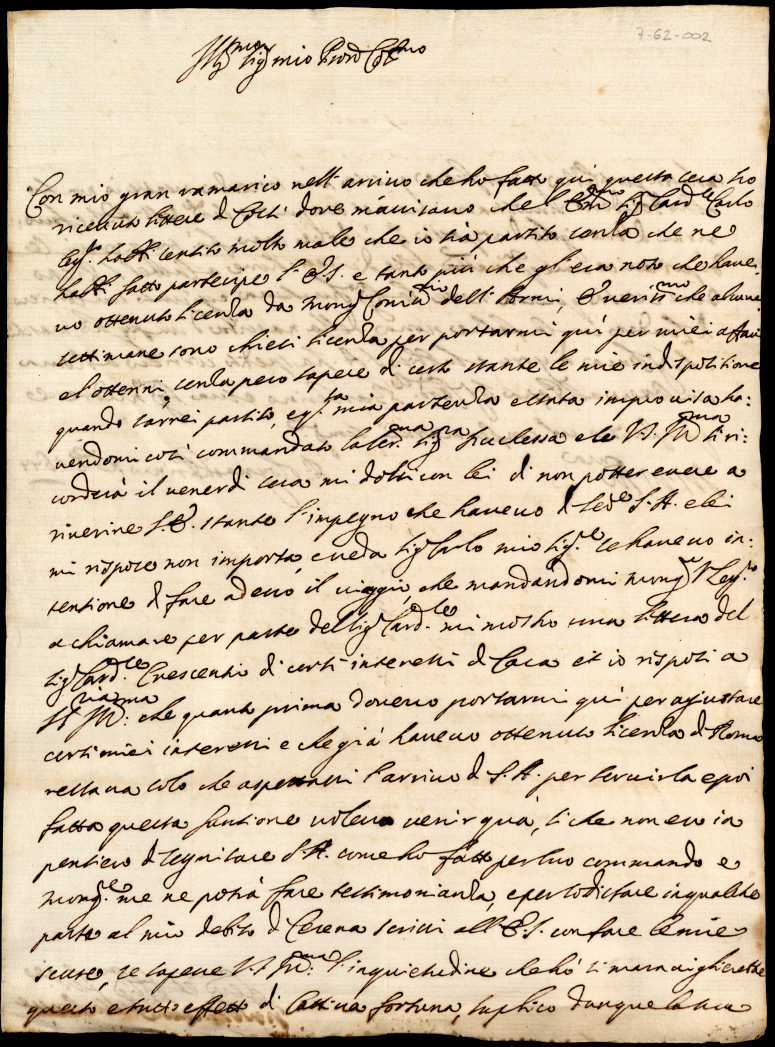 7-62-002
Ill.mo Sig. mio Pron Col.mo
Con mio gran ramarico nell'arrivo che ho fatto qui questa sera ho
ricevuto lettere di Costì dove m'avisano che l'Em.mo Sig. Card.le Carlo
habbi sentito molto male che io sia partito senza che ne
habbi fatto partecipe l'E.S. e tanto più che gl'era noto che have:
vo ottenuto licenza da Mong. dell'Armi, È veriss.mo che alcune
settimane sono chiesi licenza per portarmi quì per miei affari
e l'ottenni, senza però sapere di certo stante le mie indispositione
quando sarrei partito, mia partenza è stata improvisa ha:
vendomi così commandato la Ser.ma Sig.ra Duchessa e se V.S. Ill.ma si ri:
corderà il venerdì sera mi dolsi con lei di non potter essere a
riverire S.E. stante l'impegno che havevo di S.A. e lei
mi rispose non importa, creda Sig. Carlo mio Sig.re se havevo in:
tentione di fare adesso il viaggio, che mandandomi Mong.
a chiamare per parte del Sig. Card.le mi mostro una lettera del
Sig. Card.le Crescentio di certi interessi di Casa et io risposi a
che quanto prima dovevo portarmi qui per agiustare
certi miei interessi e che già havevo ottenuto licenza di Roma
restava solo che aspettassi l'arrivo di S.A. per servirla e poi
fatta questa funtione volevo venir quà, si che non ero in
pensiero di segnitare S.A. come ho fatto per suo commando e
Mong.re me ne potrà fare testimonianza, e per sodisfare in qualche
parte al mio debito di Cesena scrissi all'E.S. con fare le mie
scuse, se sapesse V.S. Ill.ma l'inquietudine che hò si maraviglierebbe
questo è tutto effetto di Cattiva fortuna, suplico dunque la sua